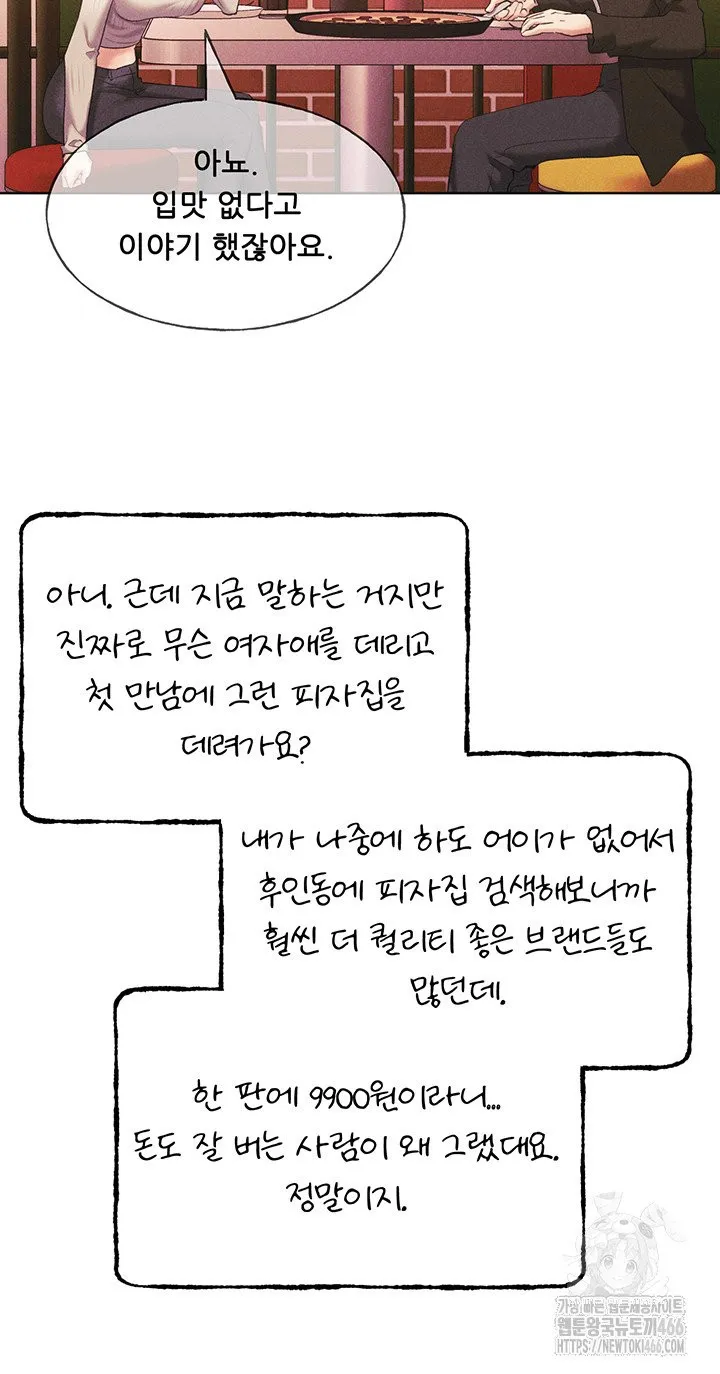 아뇨.
입맛 없다고
이야기 했잖아요.
아니. 근데 지금 말하는 거지만
진짜로 무슨 여자애를 데리고
첫 만남에 그런 피자집을
데려가요?
내가 나중에 하도 어이가 없어서
후인동에 피자집 검색해보니까
훨씬 더 퀄리티 좋은 브랜드들도
많던데.
한 판에 9900원이라니...
돈도 잘 버는 사람이 왜 그랬대요.
정말이지.
가장 빠른 웹툰제공사이트
웹툰왕국뉴토끼466
HTTPS://NEWTOKI466.COM